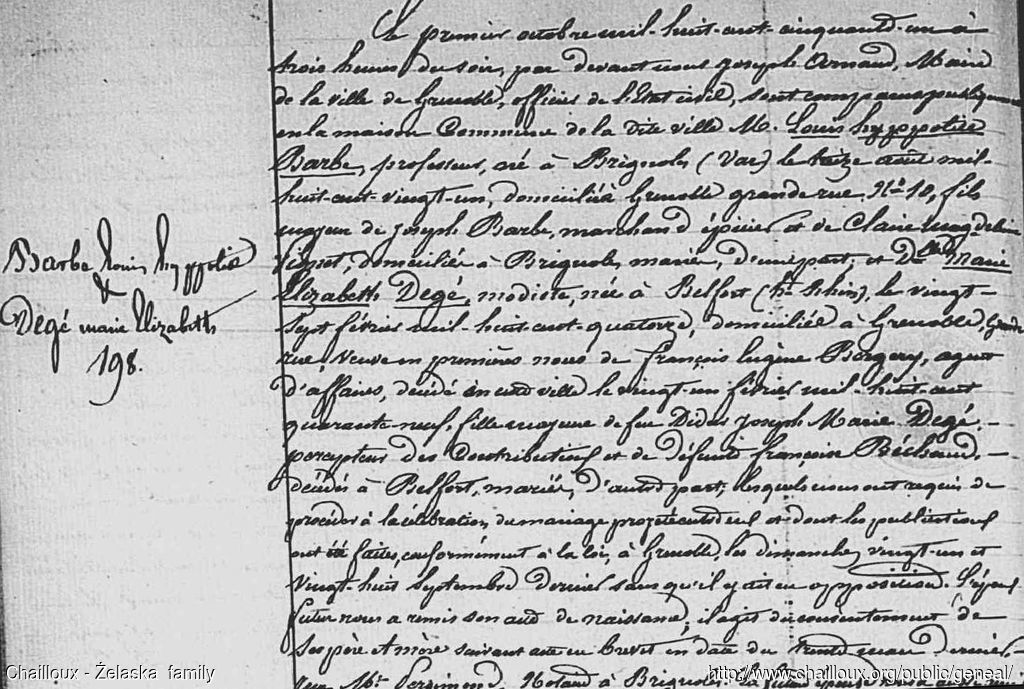 Barbe Louis hyppolite
&
Degé marie Elizabeth
198.
Le premier octobre mil-huit-cent-cinquante-un à
trois heures du soir, par devant nous Joseph Arnaud, Maire
de la ville de Grenoble, officier de l'Etat civil, sont comparus publiquement
en la maison Commune de la dite ville M. Louis hyppolite
Barbe, professeur, né à Brignoles (Var) le treize août mil-
huit-cent-vingt-un, domicilié à Grenoble grande rue N° 10, fils
majeur de Joseph Barbe, marchand épicier et de Claire magdeleine
domiciliés à Brignoles, mariés, d'une part, et Dlle Marie
Elizabeth Degé, modiste, née à Belfort (ht Rhin), le vingt-
sept février mil-huit-cent-quatorze, domiciliée à Grenoble, Grande
rue, Veuve en premières noces de françois Eugène Borgery, agent
d'affaires, décédé en cette ville le vingt-un février mil-huit-cent
quarante-neuf, fille majeure de feu Didier Joseph Marie Degé,-
percepteur des Contributions et de défunte françoise Béchaud,-
décédés à Belfort, mariés, d'autre part, lesquels nous ont requis de
procéder à la célébration du mariage projeté entr'eux et dont les publications
ont été faites, conformément à la loi, à Grenoble, les dimanches vingt-un et
vingt-huit Septembre dernier sans qu'il y ait eu opposition. L'époux
futur nous a remis son acte de naissance, il agit du consentement de
Ses père et mère suivant acte en Brevet en date du trente mai dernier,-
Mr Notaire à Brignoles. La future épouse
Chailloux - Želaska family
http://www.chailloux.org/public/geneal/